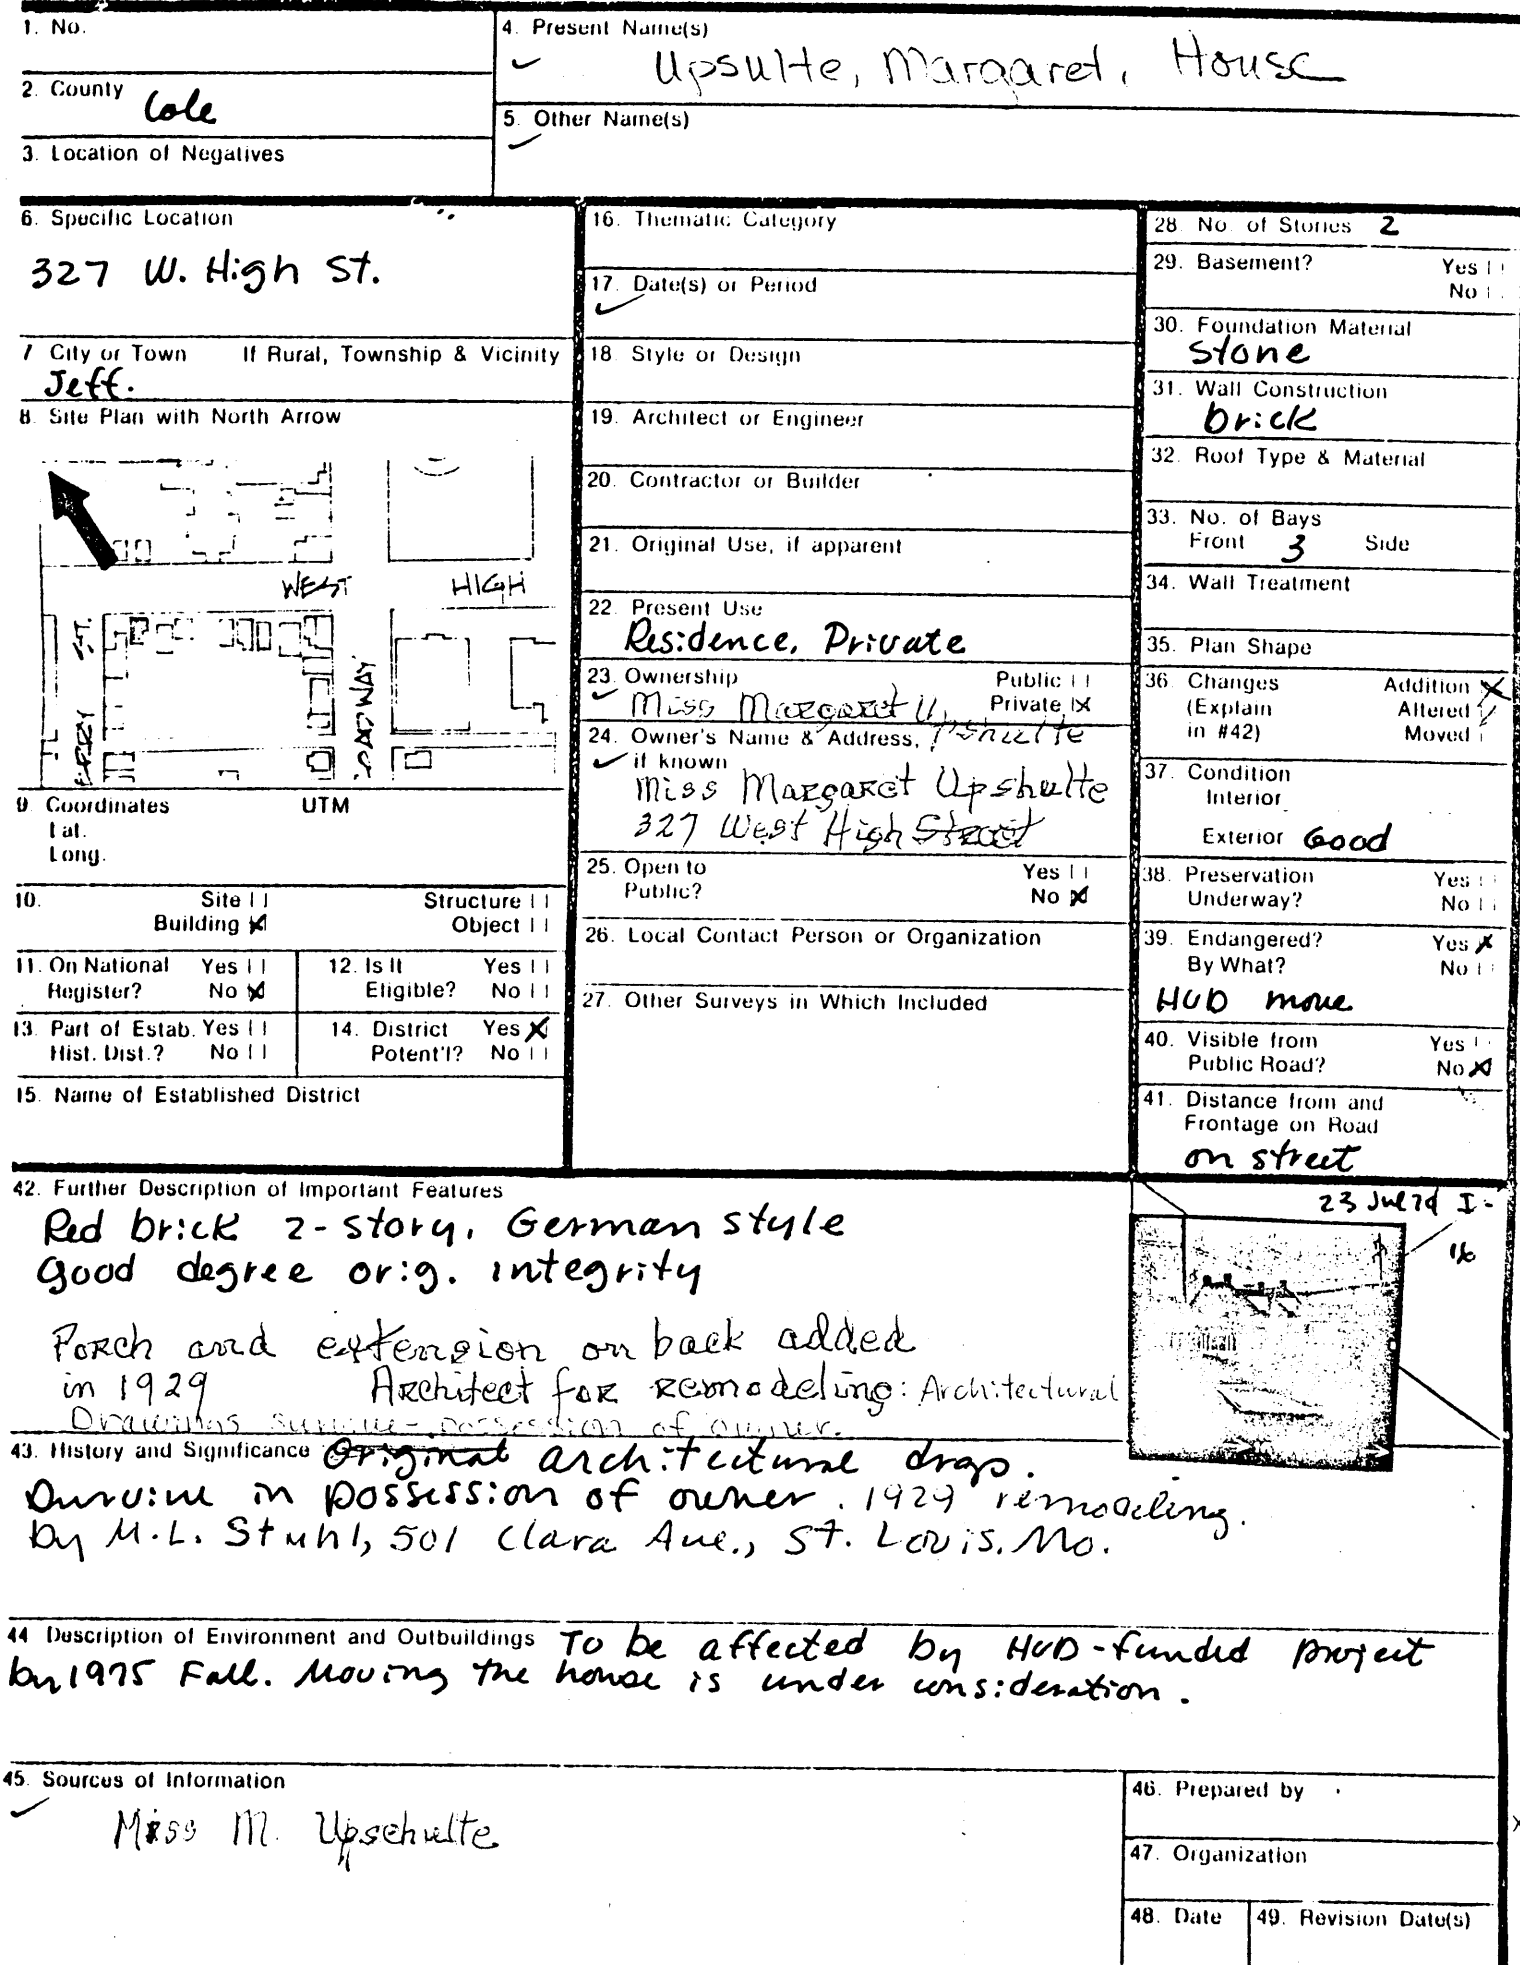 1. No.
2. County
Cole
3. Location of Negatives
4. Present Name(s)
Upsulte, Margaret, House
5. Other Name(s)
6. Specific Location
327 W. High St.
7 City or Town If Rural, Township & Vicinity
Jeff.
8. Site Plan with North Arrow
WEST HIGH
ST.
9. Coordinates UTM
Lat.
Long.
10. Site Structure
Building X Object
11. On National Yes
Register? No X
12. Is It Yes
Eligible? No
13. Part of Estab. Yes
Hist. Dist.? No
14. District Yes X
Potent'l? No
15. Name of Established District
16. Thematic Category
17. Date(s) or Period
18. Style or Design
19. Architect or Engineer
20. Contractor or Builder
21. Original Use, if apparent
22. Present Use
Residence, Private
23. Ownership Public
Miss Margaret U. Private X
pshulte
24. Owner's Name & Address,
if known
Miss Margaret Upshulte
327 West High Street
25. Open to Yes
Public? No X
26. Local Contact Person or Organization
27. Other Surveys in Which Included
28. No. of Stories 2
29. Basement? Yes
No
30. Foundation Material
stone
31. Wall Construction
brick
32. Roof Type & Material
33. No. of Bays
Front 3 Side
34. Wall Treatment
35. Plan Shape
36. Changes Addition X
(Explain Altered
in #42) Moved
37. Condition
Interior
Exterior Good
38. Preservation Yes
Underway? No
39. Endangered? Yes X
By What? No
HUD move
40. Visible from Yes
Public Road? No X
41. Distance from and
Frontage on Road
on street
42. Further Description of Important Features
Red brick 2-story, German style
Good degree orig. integrity
Porch and extension on back added
in 1929 Architect for remodeling: Architectural
Drawings survive - possession of owner.
23 Jul
43. History and Significance Original architectural
in possession of owner. 1929 remodeling.
by M.L. Stuhl, 501 Clara Ave., St. Louis, Mo.
44 Description of Environment and Outbuildings To be affected by HUD-funded project
by 1975 Fall. Moving the house is under consideration.
45. Sources of Information
Miss M. Upschulte
46. Prepared by
47. Organization
48. Date 49. Revision Date(s)